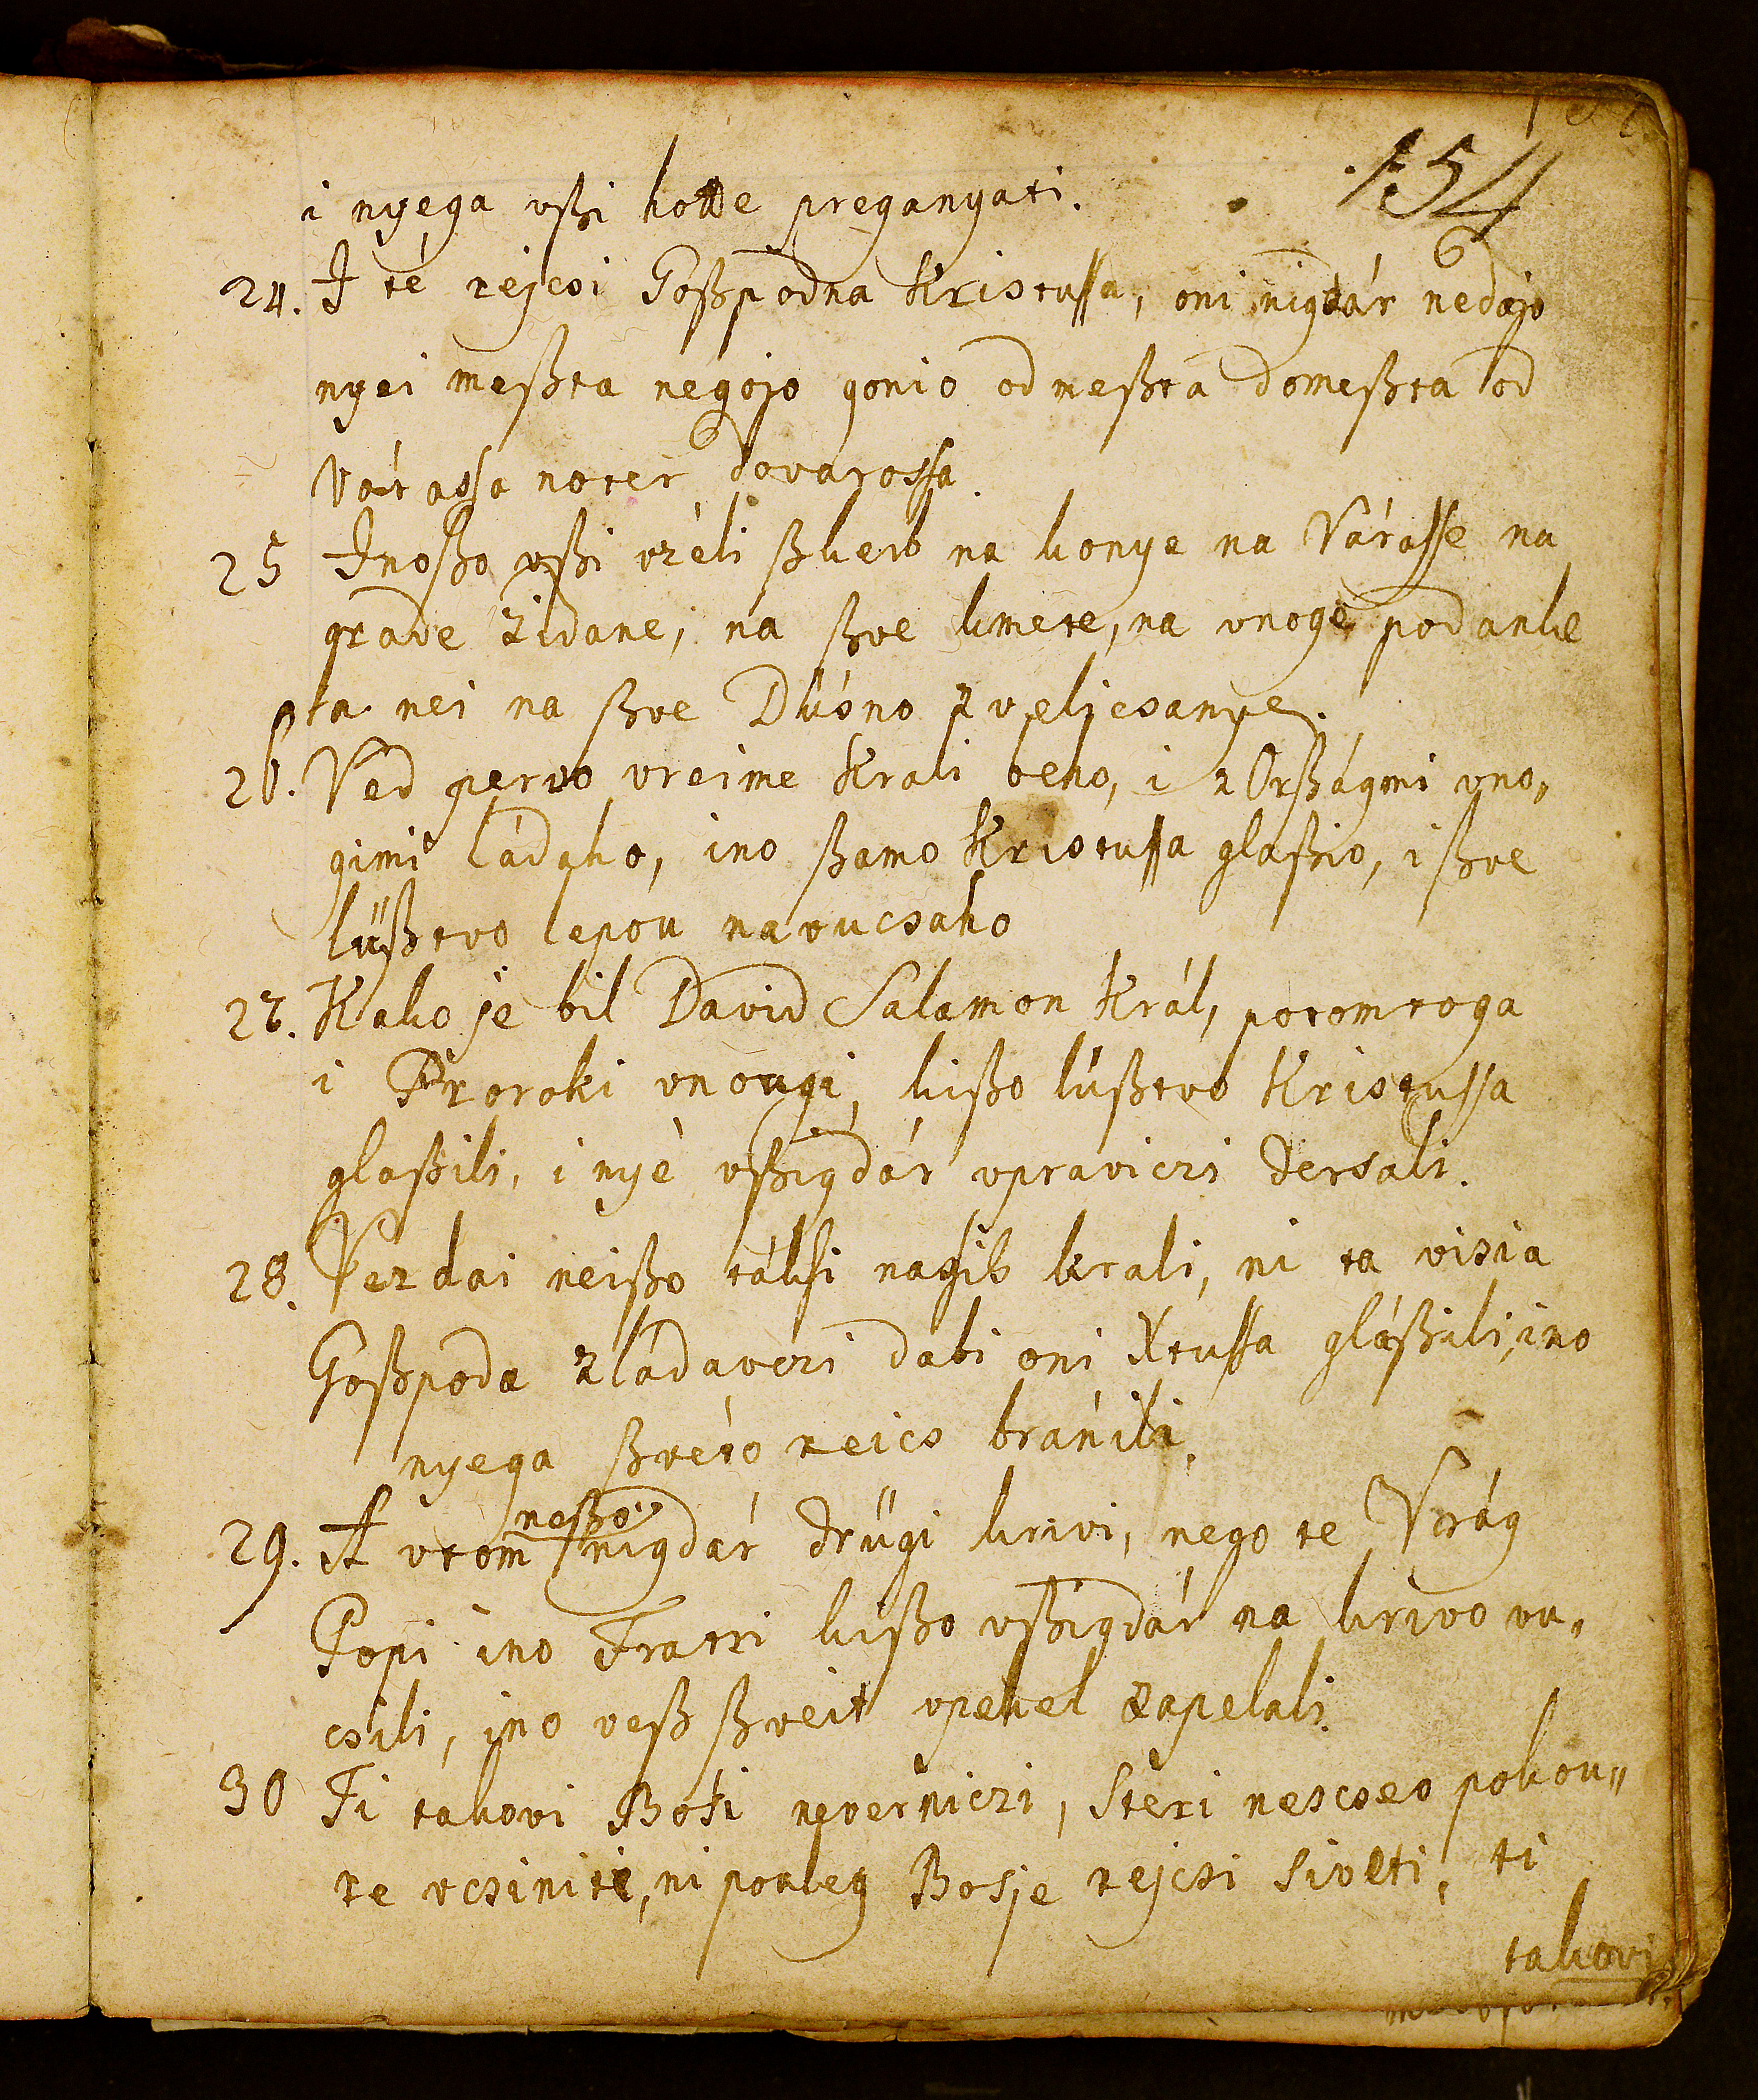 154
i nyega vßi hotte preganyati.
24. I té rejcsi Goßpodna Kristussa, oni nigdár nedajo
nyei meßta negojo gonio od meßta domeßta od
Várassa noter dovarossa.
25 Inoßo vßi vzéli ßkerb na konye na Várasse na
grade zidane, na ßve kmete, na vnoge podanke
ta nei na ßve Düsno zvelicsanye.
26. Ved pervo vreime Krali beho, i z Orßágmi vno„
gimi ládaho, ino ßamo Kristussa glaßio, i ßve
lüßtvo lepou navucsaho
27. Kako je bil David Salamon Král, potomtoga
i Proroki vnougi, kißo lüßtvo Kristussa
glaßili, i nyé vßigdár vpraviczi dersali.
28. Vezdai neißo táksi nagib krali, ni ta visia
Goßpoda zládavczi dabi oni Xtussa gláßili, ino
nyega ßvéto reics bránili.
29. A vtom neßo nigdár drügi krivi, nego te Vrág
Popi ino Fratri kißo vßigdár na krivo vu„
csili, ino veß ßveit vpekel zapelali.
30 Ti takovi Bosi neverniczi, steri nescseo pokou„
re vcsiniti, ni pouleg Bosje rejcsi siveti, ti
takovi